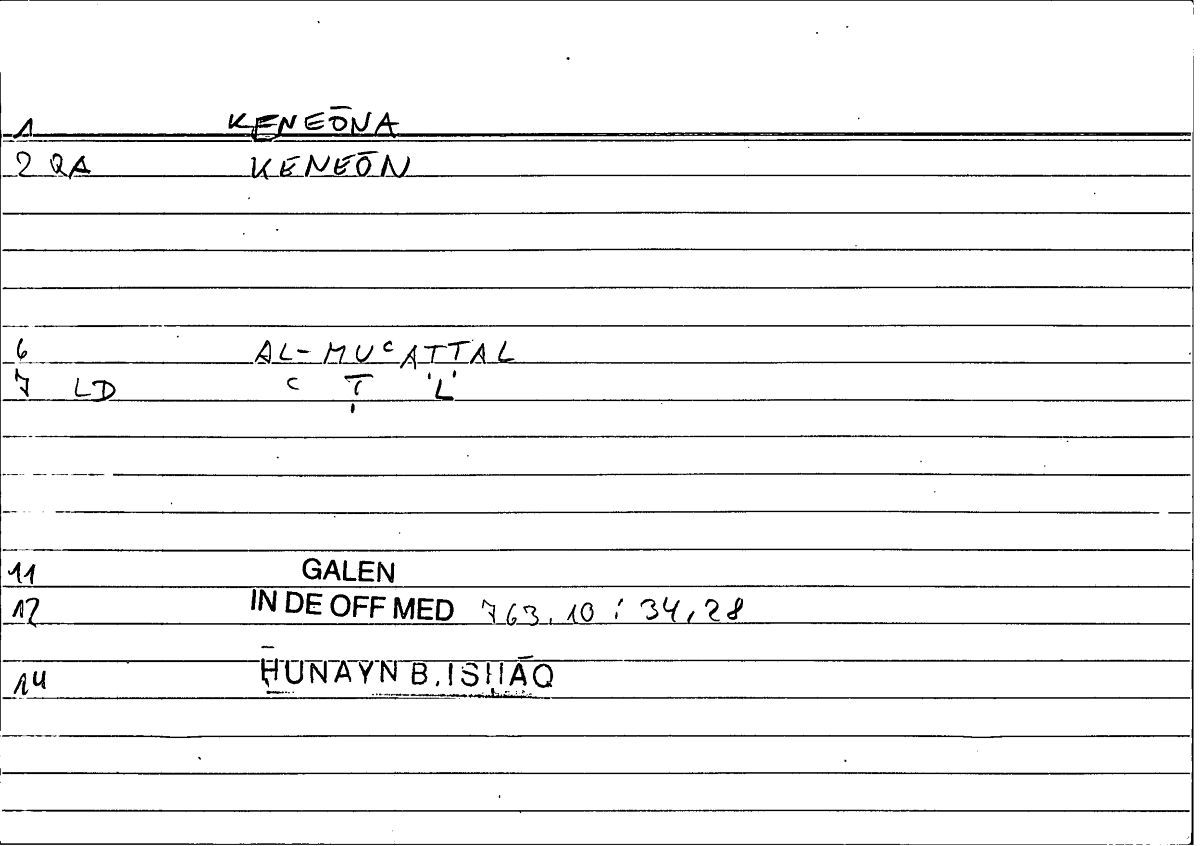 1 KENEŌNA
2 QA KENEŌN
6 AL-MUᶜAṬṬAL
7 LD ᶜ Ṭ L
11 GALEN
12 IN DE OFF MED 763.10 : 34,28
14 ḤUNAYN B. ISḤĀQ